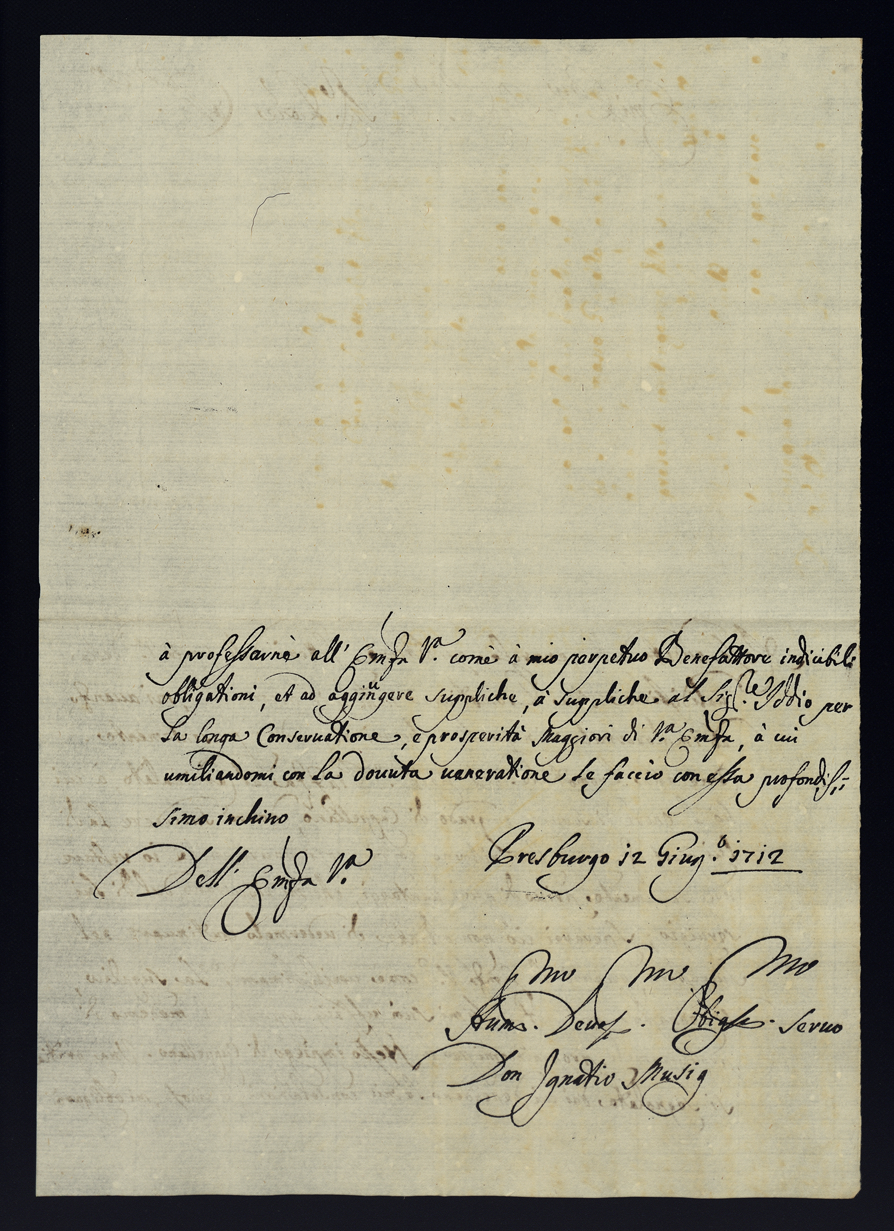 à professarnè all' Emza Vª. comè à mio parpetuo Benefattore indicibili
obligationi, et ad aggiũgere suppliche, à suppliche al Sigre. Iddio per
la longa Conseruatione, è prosperità Maggiori di Vª Emza, à cui
umiliandomi con la douuta uaneratione le faccio con essa profondis=
simo inchino
Presburgo 12 Giugo. 1712
Dell' Emza Vª
mo mo mo
Hums. Deuos. Obigss. Seruo
Don Ignatio Musig